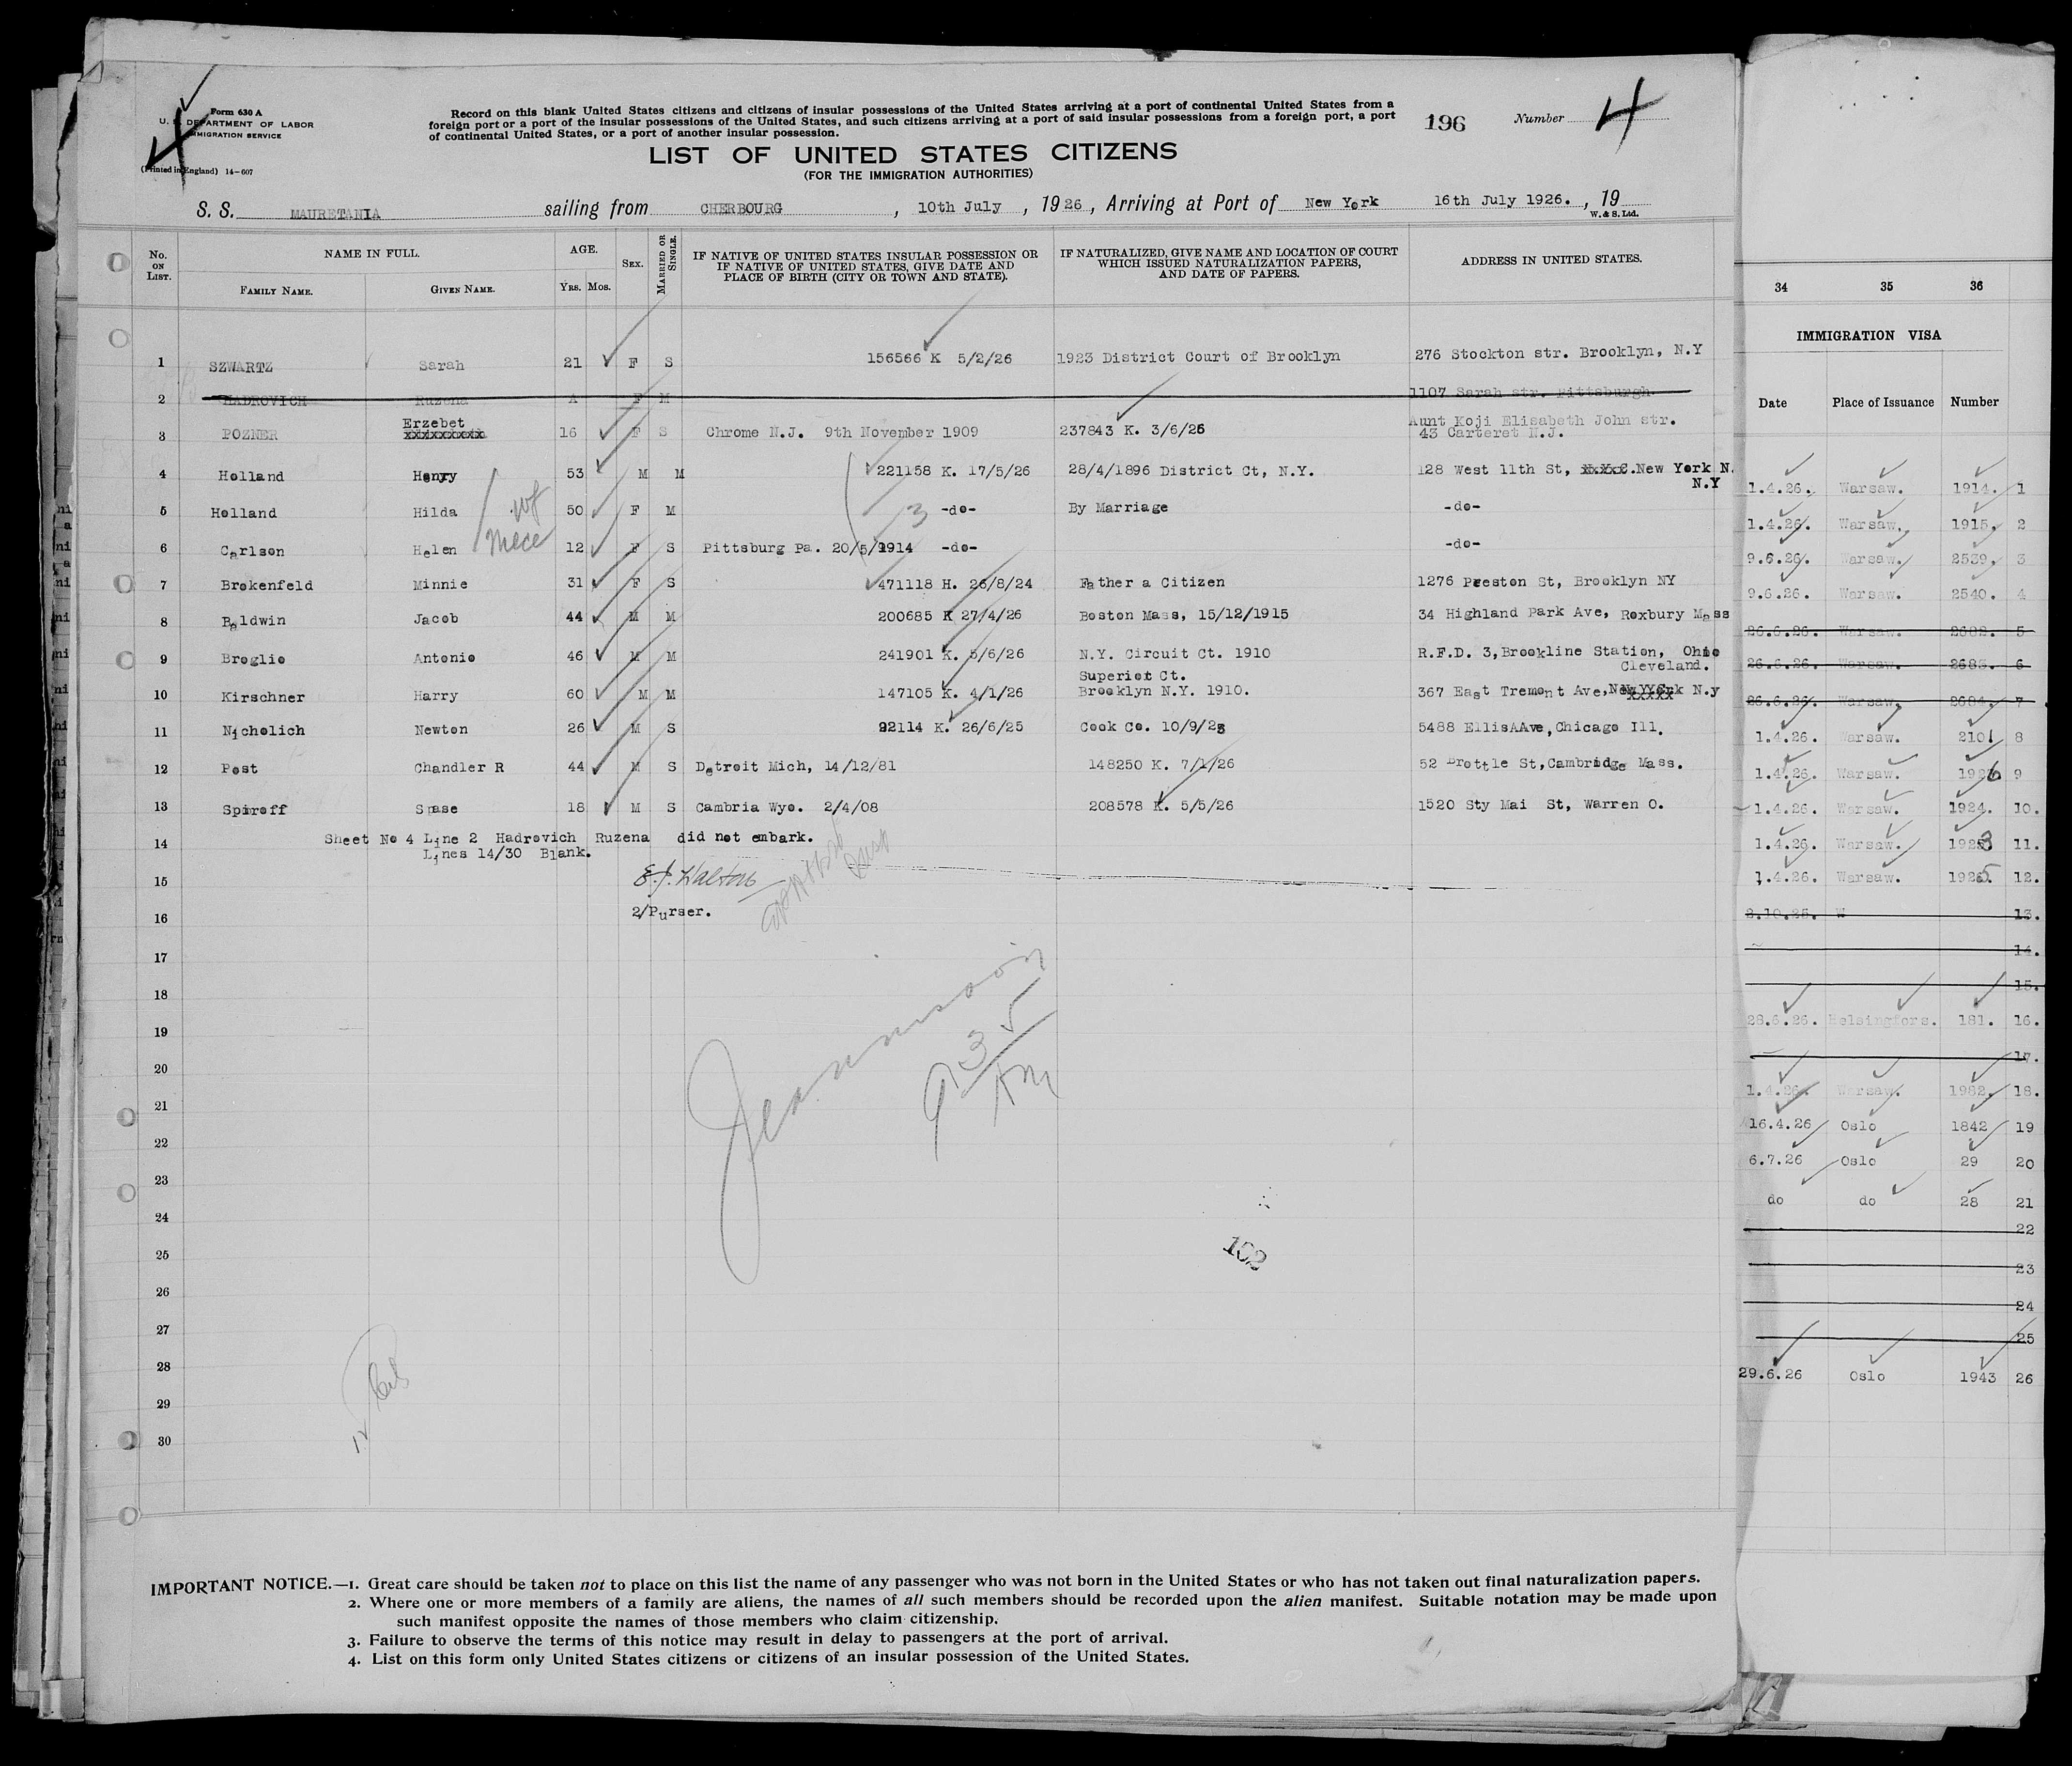 Form 630 A
U. S. DEPARTMENT OF LABOR
IMMIGRATION SERVICE
(Printed in England) 14-607
Record on this blank United States citizens and citizens of insular possessions of the United States arriving at a port of continental United States from a
foreign port or a port of the insular possessions of the United States, and such citizens arriving at a port of said insular possessions from a foreign port, a port
of continental United States, or a port of another insular possession.
196 Number 4
LIST OF UNITED STATES CITIZENS
(FOR THE IMMIGRATION AUTHORITIES)
S. S. MAURETANIA sailing from CHERBOURG, 10th July, 1926, Arriving at Port of New York 16th July 1926., 19
W. & S. Ltd.
No. ON LIST. NAME IN FULL. AGE. SEX. MARRIED OR SINGLE. IF NATIVE OF UNITED STATES INSULAR POSSESSION OR IF NATIVE OF UNITED STATES, GIVE DATE AND PLACE OF BIRTH (CITY OR TOWN AND STATE). IF NATURALIZED, GIVE NAME AND LOCATION OF COURT WHICH ISSUED NATURALIZATION PAPERS, AND DATE OF PAPERS. ADDRESS IN UNITED STATES.
FAMILY NAME. GIVEN NAME. YRS. MOS.
1 SZWARTZ Sarah 21 F S 156566 K 5/2/26 1923 District Court of Brooklyn 276 Stockton str. Brooklyn, N.Y
2 HADROVICH Ruzena A F M 1107 Sarah str. Pittsburgh
3 POZNER Erzebet xxxxxxxxxx 16 F S Chrome N.J. 9th November 1909 237843 K. 3/6/26 Aunt Koji Elisabeth John str.
43 Carteret N.J.
4 Holland Henry 53 M M 221158 K. 17/5/26 28/4/1896 District Ct, N.Y. 128 West 11th St, New York N.
N.Y
5 Holland Hilda wf 50 F M 3 -do- By Marriage -do-
6 Carlson Helen niece 12 F S Pittsburg Pa. 20/5/1914 -do- -do-
7 Brokenfeld Minnie 31 F S 471118 H. 26/8/24 Father a Citizen 1276 Preston St, Brooklyn NY
8 Baldwin Jacob 44 M M 200685 K 27/4/26 Boston Mass, 15/12/1915 34 Highland Park Ave, Roxbury Mass
9 Broglio Antonio 46 M M 241901 K. 5/6/26 N.Y. Circuit Ct. 1910 R.F.D. 3, Brookline Station, Ohio
Cleveland.
10 Kirschner Harry 60 M M 147105 K. 4/1/26 Superiot Ct.
Brooklyn N.Y. 1910. 367 East Tremont Ave, N.y
11 Nicholich Newton 26 M S 92114 K. 26/6/25 Cook Co. 10/9/23 5488 EllisAAve, Chicago Ill.
12 Post Chandler R 44 M S Detroit Mich, 14/12/81 148250 K. 7/1/26 52 Brottle St, Cambridge Mass.
13 Spiroff Spase 18 M S Cambria Wyo. 2/4/08 208578 K. 5/5/26 1520 Sty Mai St, Warren O.
14 Sheet No 4 Line 2 Hadrovich Ruzena did not embark.
Lines 14/30 Blank.
15 E.J. Walton
16 2/Purser.
17
18
19
20
21
22
23
24
25
26
27
28
29
30
102
IMPORTANT NOTICE.—1. Great care should be taken not to place on this list the name of any passenger who was not born in the United States or who has not taken out final naturalization papers.
2. Where one or more members of a family are aliens, the names of all such members should be recorded upon the alien manifest. Suitable notation may be made upon
such manifest opposite the names of those members who claim citizenship.
3. Failure to observe the terms of this notice may result in delay to passengers at the port of arrival.
4. List on this form only United States citizens or citizens of an insular possession of the United States.
34 35 36
IMMIGRATION VISA
Date Place of Issuance Number
1.4.26. Warsaw. 1914. 1
1.4.26. Warsaw. 1915. 2
9.6.26. Warsaw. 2539. 3
9.6.26. Warsaw. 2540. 4
26.6.26. Warsaw. 2682. 5
26.6.26. Warsaw. 2683. 6
26.6.26. Warsaw. 2684. 7
1.4.26. Warsaw. 2101 8
1.4.26. Warsaw. 1926 9
1.4.26. Warsaw. 1924. 10.
1.4.26. Warsaw. 1923 11.
1.4.26. Warsaw. 1925 12.
3.10.25. W 13.
14.
15.
28.6.26. Helsingfors. 181. 16.
17.
1.4.26. Warsaw. 1982. 18.
16.4.26 Oslo 1842 19
6.7.26 Oslo 29 20
do do 28 21
22
23
24
25
29.6.26 Oslo 1943 26